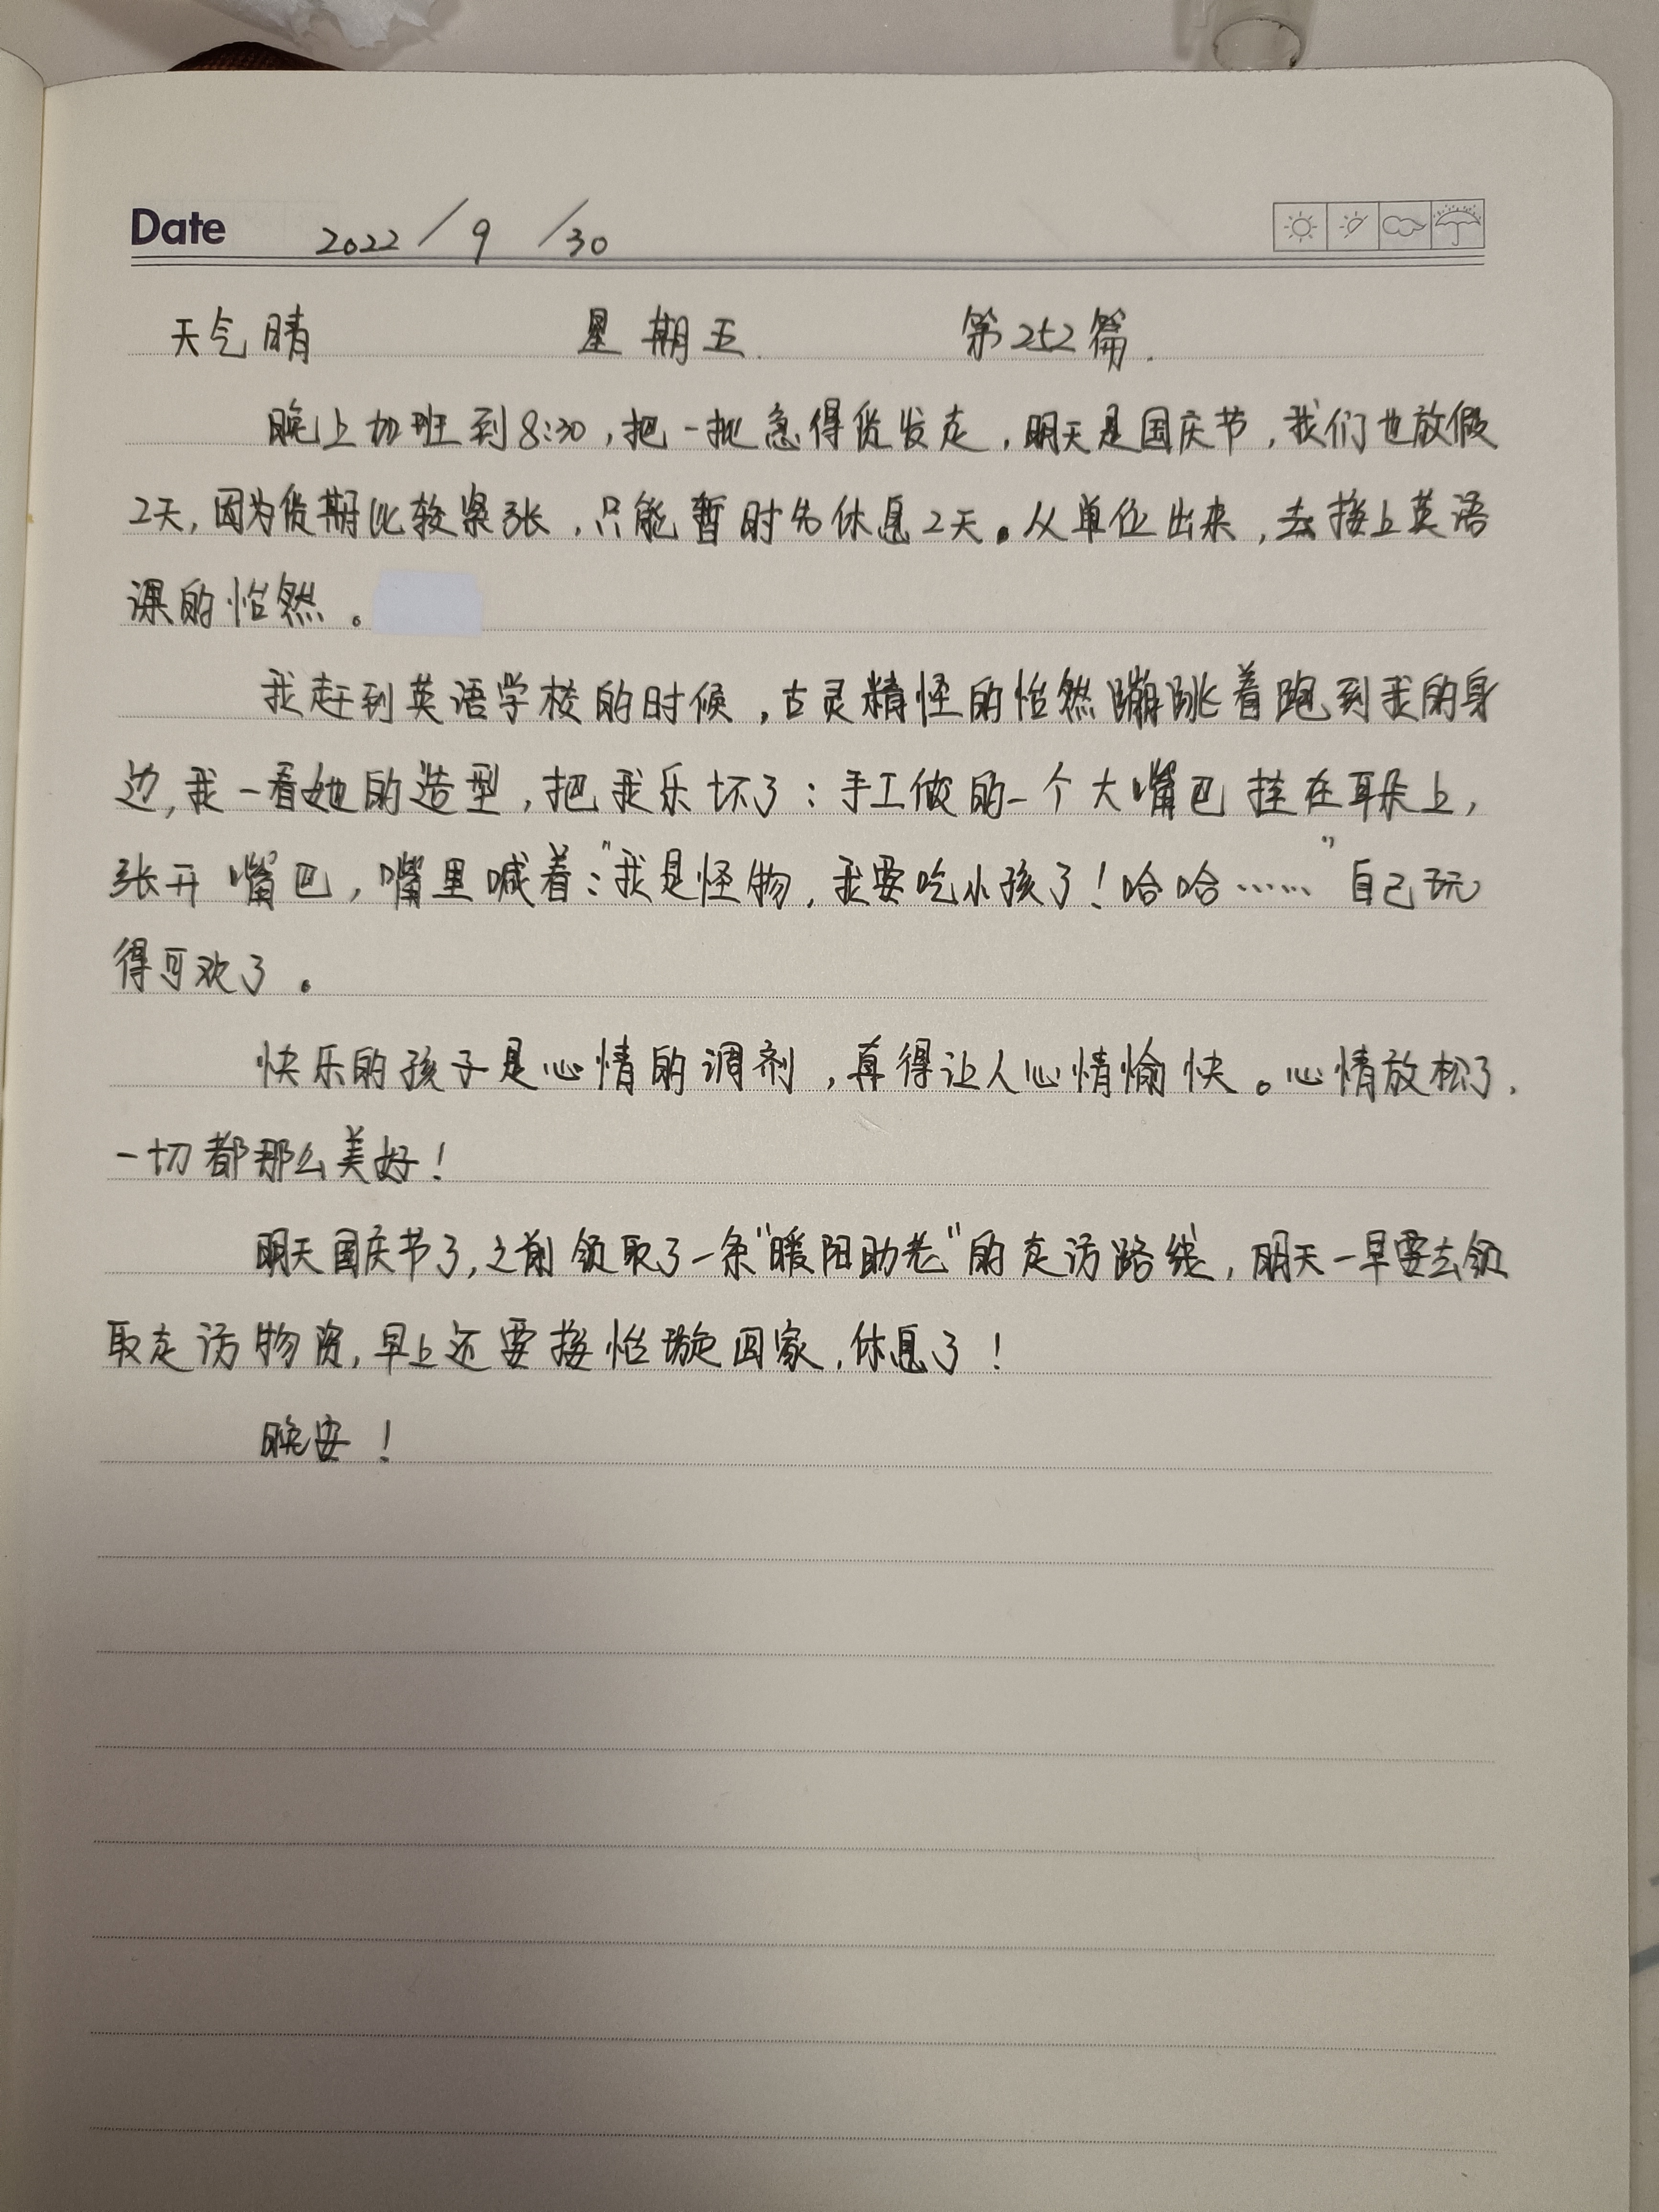 Date 2022/9/30
天气晴 星期五. 第252篇.
晚上加班到8:30,把一批急得货发走,明天是国庆节,我们也放假
2天,因为货期比较紧张,只能暂时先休息2天。从单位出来,去接上英语
课的怡然。
我赶到英语学校的时候,古灵精怪的怡然蹦跳着跑到我的身
边,我一看她的造型,把我乐坏了:手工做的一个大嘴巴挂在耳朵上,
张开嘴巴,嘴里喊着:“我是怪物,我要吃小孩了!哈哈……”自己玩
得可欢了。
快乐的孩子是心情的调剂,真得让人心情愉快。心情放松了,
一切都那么美好!
明天国庆节了,之前领取了一条“暖阳助老”的走访路线,明天一早要去领
取走访物资,早上还要接怡璇回家,休息了!
晚安!